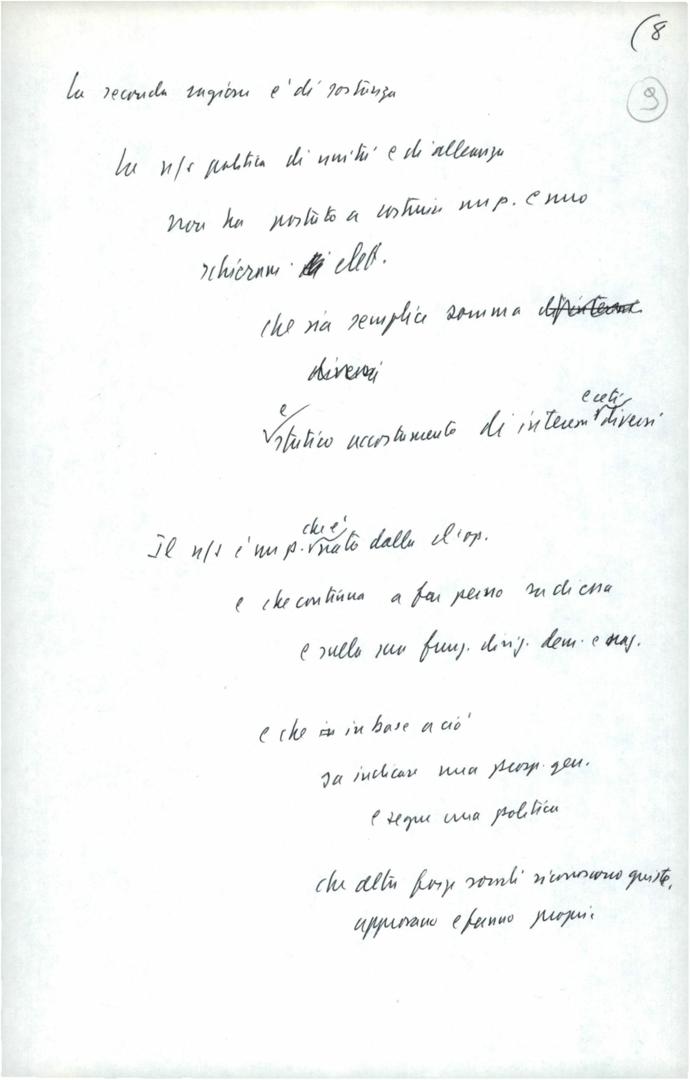 (8
9
La seconda ragione è di sostanza
La n/s politica di unità e di alleanza
non ha portato a costruire un p. e uno
schieram. elett.
che sia semplice somma di interessi
diversi
e statico accostamento di interessi e ceti diversi
Il n/s è un p. che è nato dalla cl. op.
e che continua a far perno su di essa
e sulla sua funz. dirig. dem. e naz.
e che in in base a ciò
sa indicare una prosp. gen.
e segue una politica
che altre forze sociali riconoscono giuste,
approvano e fanno propri.